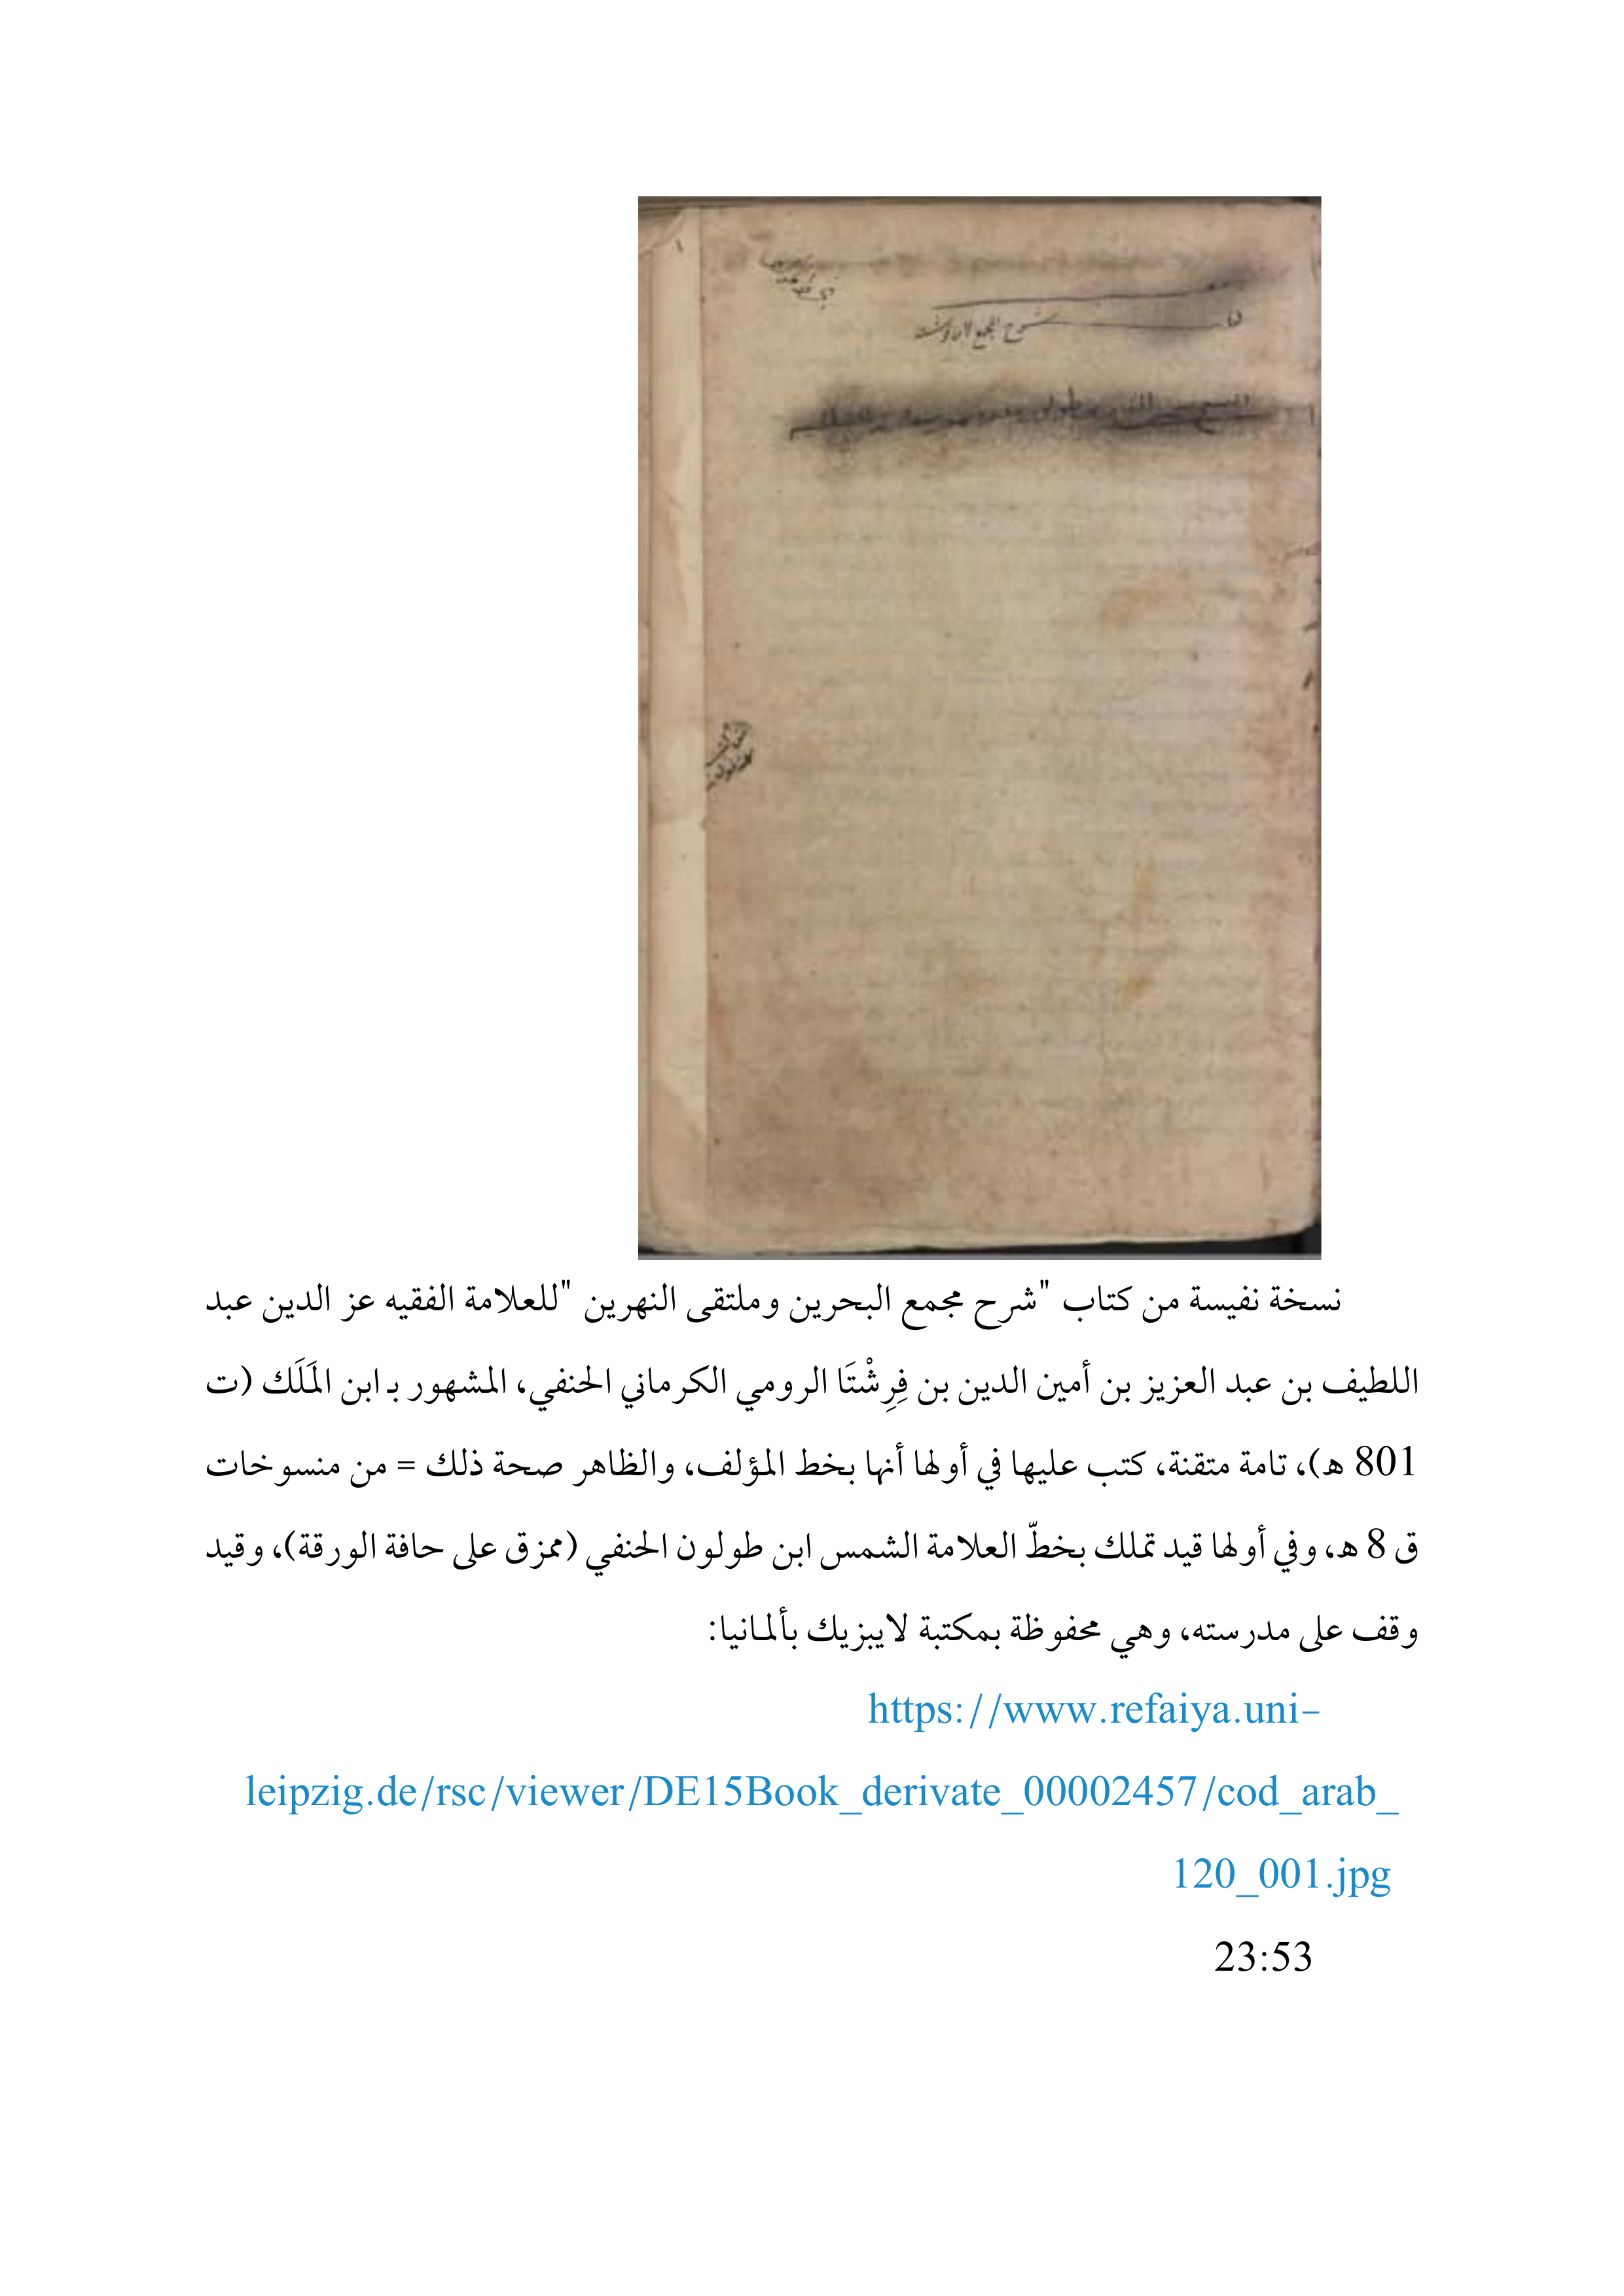 شرح المجمع لابن فرشته
نسخة نفيسة من كتاب "شرح مجمع البحرين وملتقى النهرين "للعلامة الفقيه عز الدين عبد
اللطيف بن عبد العزيز بن أمين الدين بن فِرِشْتَا الرومي الكرماني الحنفي، المشهور بـ ابن المَلَك (ت
801 هـ)، تامة متقنة، كتب عليها في أولها أنها بخط المؤلف، والظاهر صحة ذلك = من منسوخات
ق 8 هـ، وفي أولها قيد تملك بخطّ العلامة الشمس ابن طولون الحنفي (ممزق على حافة الورقة)، وقيد
وقف على مدرسته، وهي محفوظة بمكتبة لايبزيك بألمانيا:
https://www.refaiya.uni-
leipzig.de/rsc/viewer/DE15Book_derivate_00002457/cod_arab_
120_001.jpg
23:53